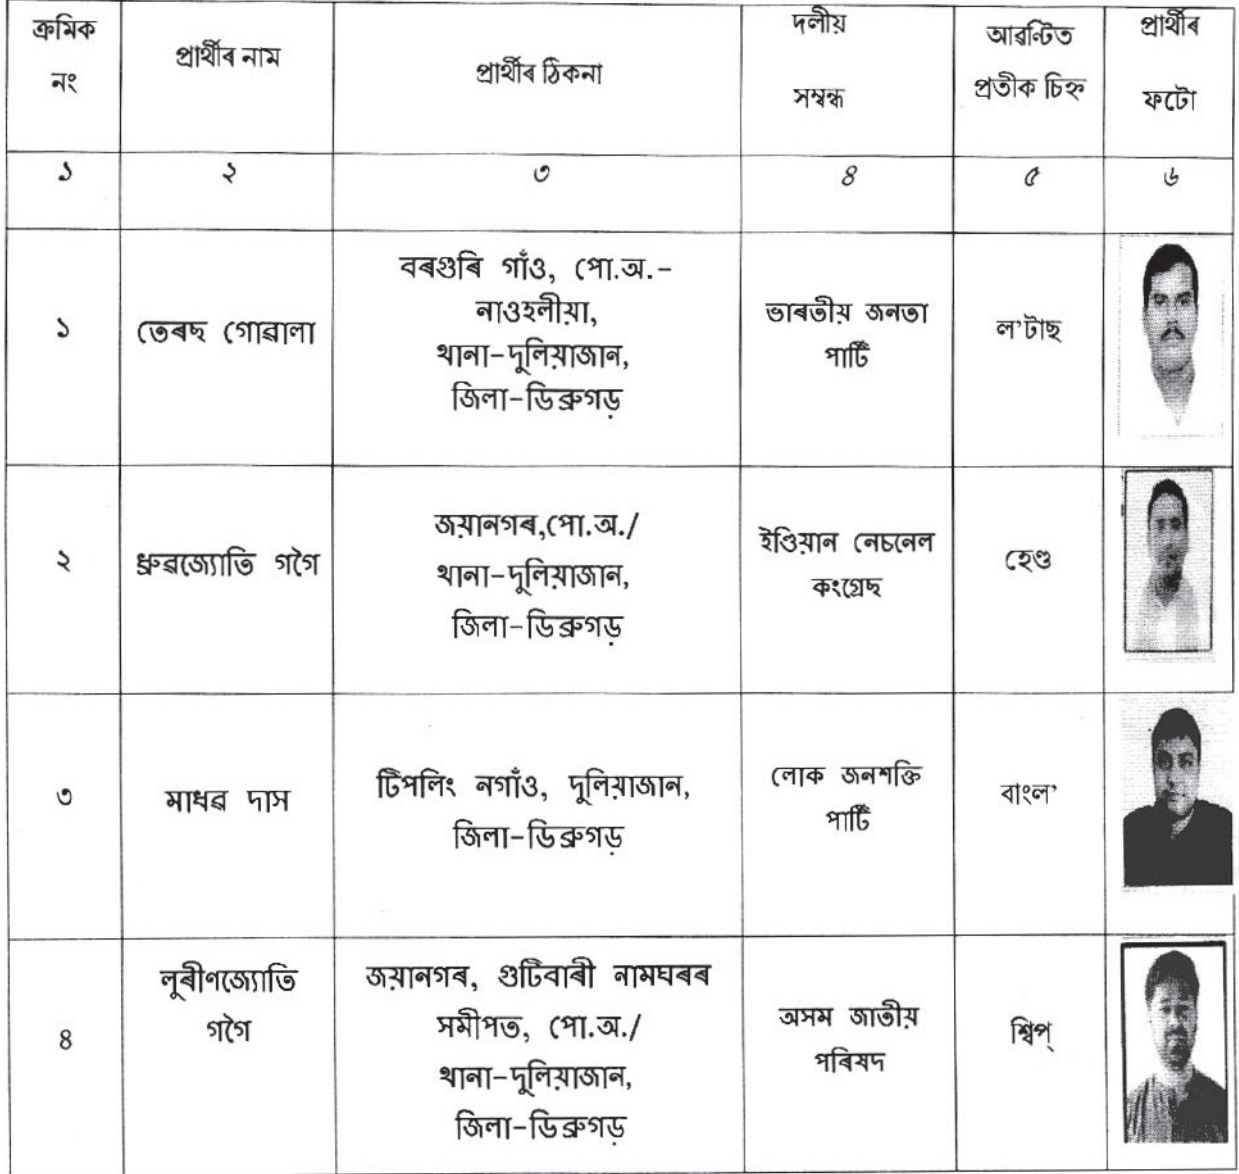 ক্ৰমিক নং
প্ৰাৰ্থীৰ নাম
প্ৰাৰ্থীৰ ঠিকনা
দলীয় সম্বন্ধ
আৱন্টিত প্ৰতীক চিহ্ন
প্ৰাৰ্থীৰ ফটো
১ ২ ৩ ৪ ৫ ৬
১
তেৰছ গোৱালা
বৰগুৰি গাঁও, পো.অ.-
নাওহলীয়া,
থানা-দুলিয়াজান,
জিলা-ডিব্ৰুগড়
ভাৰতীয় জনতা
পাৰ্টি
ল'টাছ
২
ধ্ৰুৱজ্যোতি গগৈ
জয়ানগৰ,পো.অ./
থানা-দুলিয়াজান,
জিলা-ডিব্ৰুগড়
ইণ্ডিয়ান নেচনেল
কংগ্ৰেছ
হেণ্ড
৩
মাধৱ দাস
টিপলিং নগাঁও, দুলিয়াজান,
জিলা-ডিব্ৰুগড়
লোক জনশক্তি
পাৰ্টি
বাংল'
৪
লুৰীণজ্যোতি
গগৈ
জয়ানগৰ, গুটিবাৰী নামঘৰৰ
সমীপত, পো.অ./
থানা-দুলিয়াজান,
জিলা-ডিব্ৰুগড়
অসম জাতীয়
পৰিষদ
শ্বিপ্